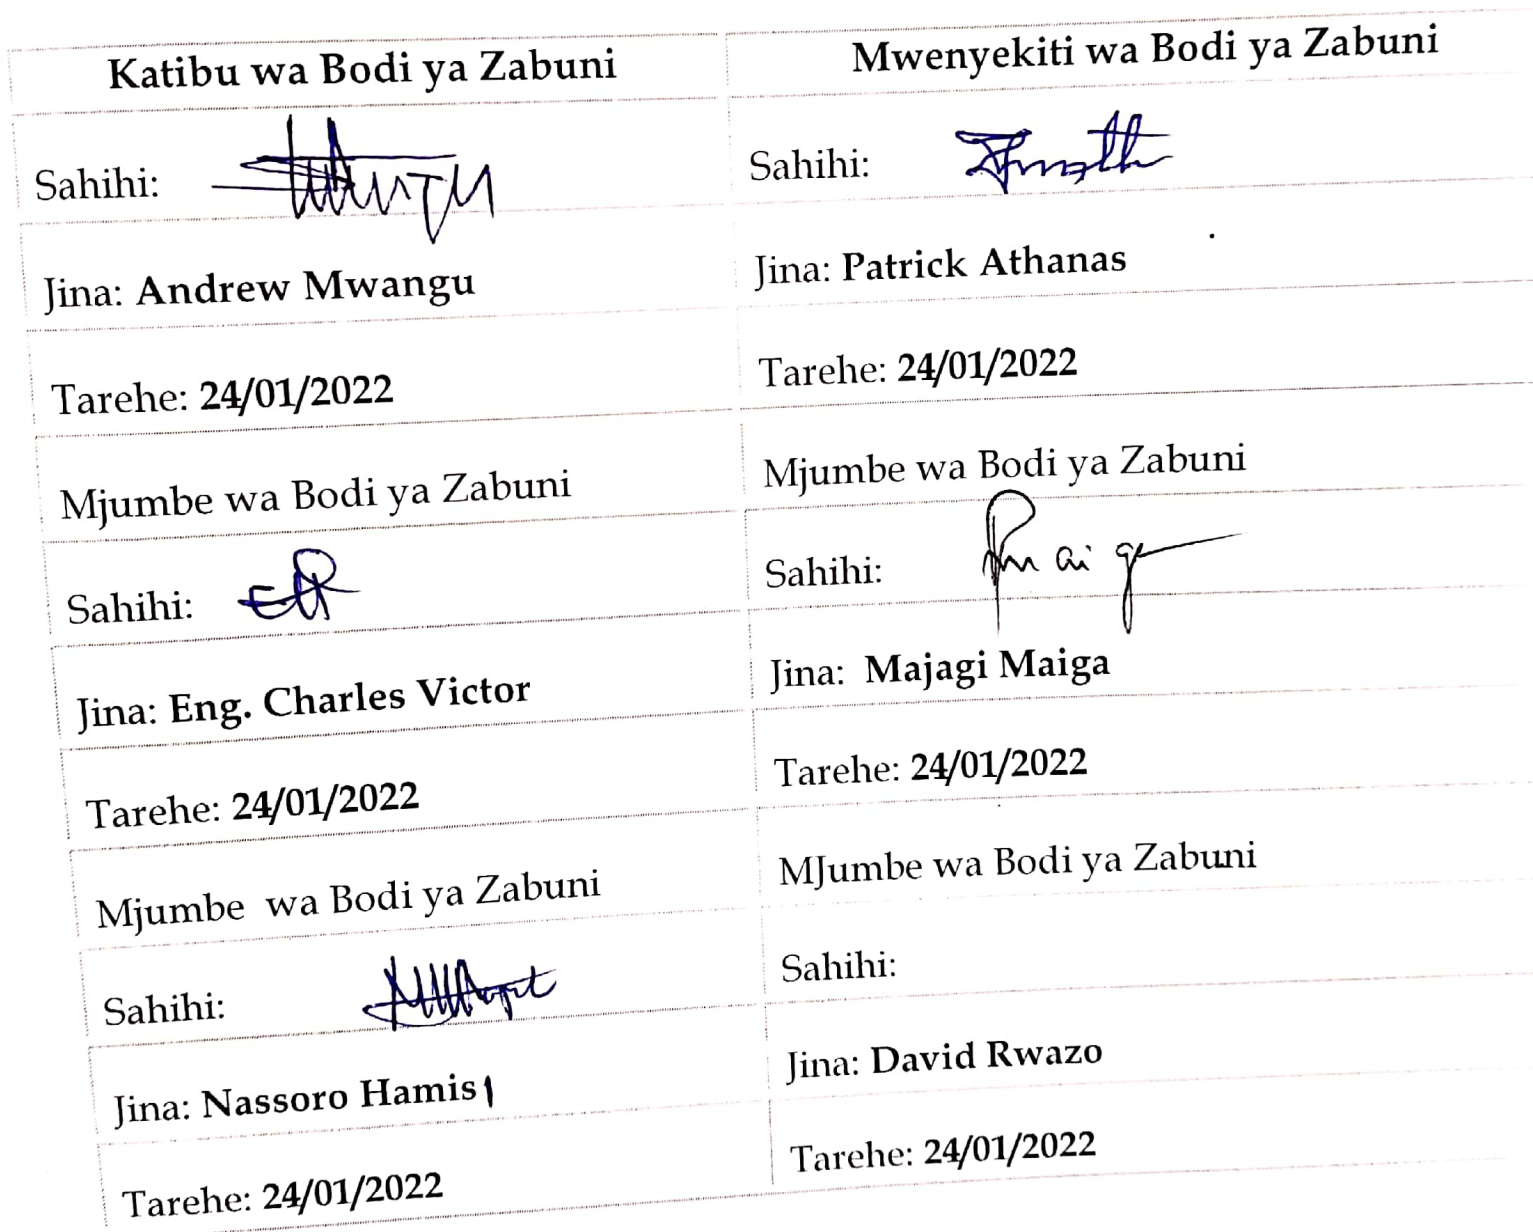 Katibu wa Bodi ya Zabuni
Mwenyekiti wa Bodi ya Zabuni
Sahihi:
Sahihi:
Jina: Andrew Mwangu
Jina: Patrick Athanas
Tarehe: 24/01/2022
Tarehe: 24/01/2022
Mjumbe wa Bodi ya Zabuni
Mjumbe wa Bodi ya Zabuni
Sahihi:
Sahihi:
Jina: Eng. Charles Victor
Jina: Majagi Maiga
Tarehe: 24/01/2022
Tarehe: 24/01/2022
Mjumbe wa Bodi ya Zabuni
MJumbe wa Bodi ya Zabuni
Sahihi:
Sahihi:
Jina: Nassoro Hamisi
Jina: David Rwazo
Tarehe: 24/01/2022
Tarehe: 24/01/2022